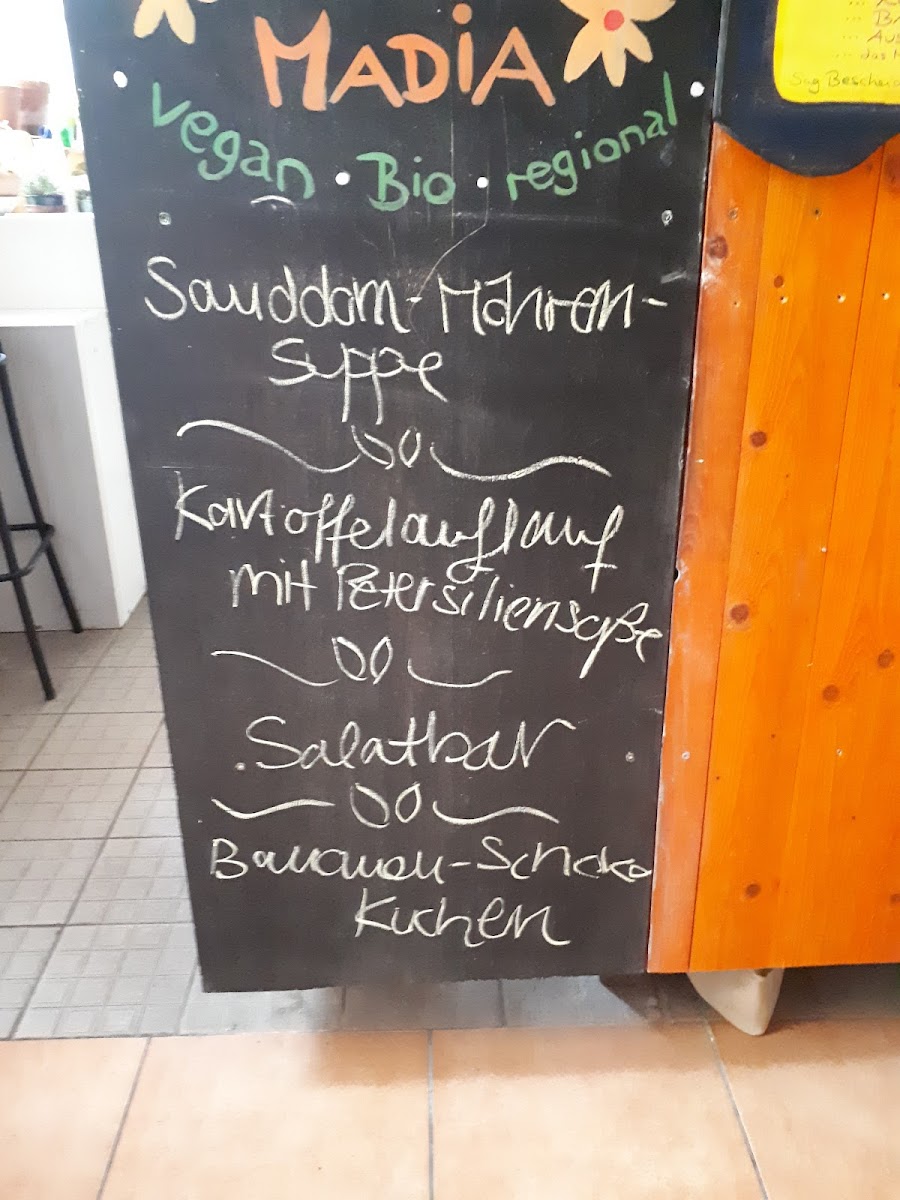 MADiA
vegan · Bio · regional
Sanddorn-Möhren-
suppe
Kartoffelauflauf
mit Petersiliensoße
Salatbar
Bananen-Schoko
Kuchen